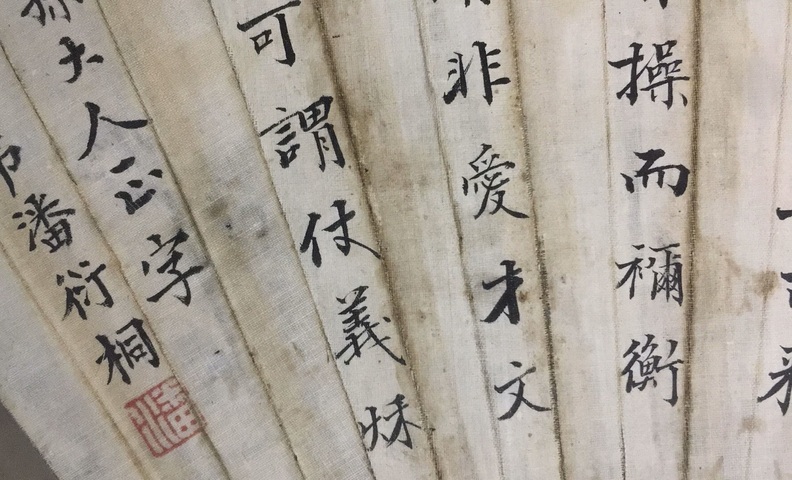 操而禰衡
非愛才文
可謂仗義
大人正字
潘衍桐
潘